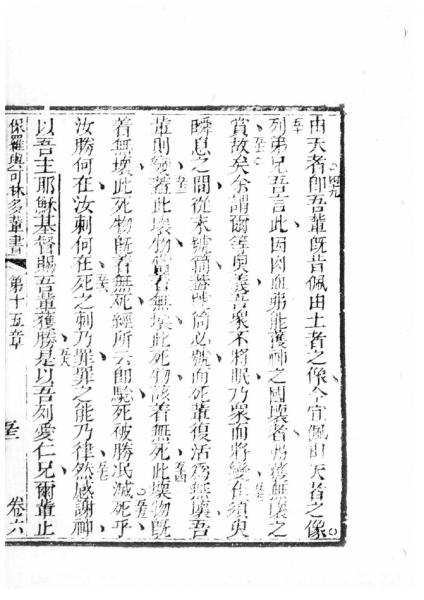 由天者卽吾輩旣昔佩由土者之像今宜佩由天者之像
列弟兄吾言此因肉血弗能獲神之國壞者弗獲無壞之
賞故矣余謂爾等奧義吾衆不將眠乃衆而將變在須臾
瞬息之間從末號筒蓋號筒必號而死輩復活爲無壞吾
輩則變蓋此壞物當着無壞此死物該着無死此壞物旣
着無壞此死物旣着無死經所云卽驗死破勝泯滅死乎
汝勝何在汝刺何在死之刺乃罪罪之能乃律然感謝神
以吾主耶穌基督賜吾輩獲勝是以吾列愛仁兄爾輩止
保羅與可林多輩書 第十五章 卷六